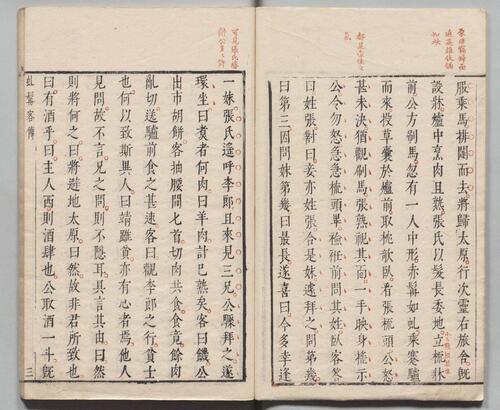 服乘馬排闥而去將歸太原行次靈右旅舍既
設牀爐中烹肉且熟張氏以髮長委地立梳牀
前公方刷馬忽有一人中形赤髯如虬乘蹇驢
而來投革囊於爐前取枕欹臥看張梳頭公怒
甚未決猶觀刷馬張熟視其面一手映身搖示
公令勿怒急急梳頭畢襝袵前問其姓臥客答
曰姓張對曰妾亦姓張合是妹遽拜之問第幾
曰第三因問妹第幾曰最長遂喜曰今多幸逢
可見張氏勝
一妹張氏遙呼李郎且來見三兄公驟拜之遂
環坐曰煮者何肉曰羊肉計已熟矣客曰饑公
出市胡餅客抽腰間匕首切肉共食食竟餘肉
亂切送驢前食之甚速客曰觀李郎之行貧士
也何以致斯異人曰靖雖貧亦有心者焉他人
見問故不言兄之問則不隱耳具言其由曰然
則將何之曰將避地太原曰然故非君所致也
曰有酒乎曰主人西則酒肆也公取酒一斗既
虬髯客傳
三